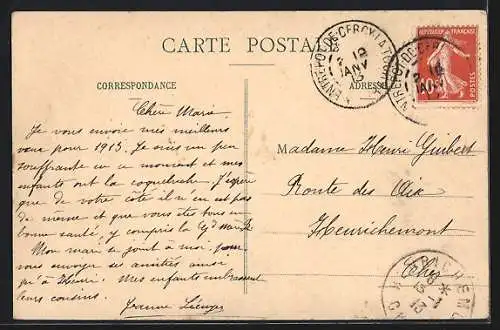 CARTE POSTALE
CORRESPONDANCE
ADRESSE
Chère Marie
Je vous envoie mes meilleurs
vœux pour 1913. Je suis un peu
souffrante en ce moment et mes
enfants ont la coqueluche. J'espère
que de votre côté il n'en est pas
de même et que vous êtes tous en
bonne santé, y compris la
Mon mari se joint à moi pour
vous envoyer ses amitiés ainsi
qu'à Henri. Mes enfants embrassent
leurs cousins.
Jeanne
Madame Henri Guibert
Route des Aix
Henrichemont
Cher
ENTREPOT-DE-CERCY-LA-TOUR
12
JANV
13
REPUBLIQUE FRANÇAISE
POSTES
10